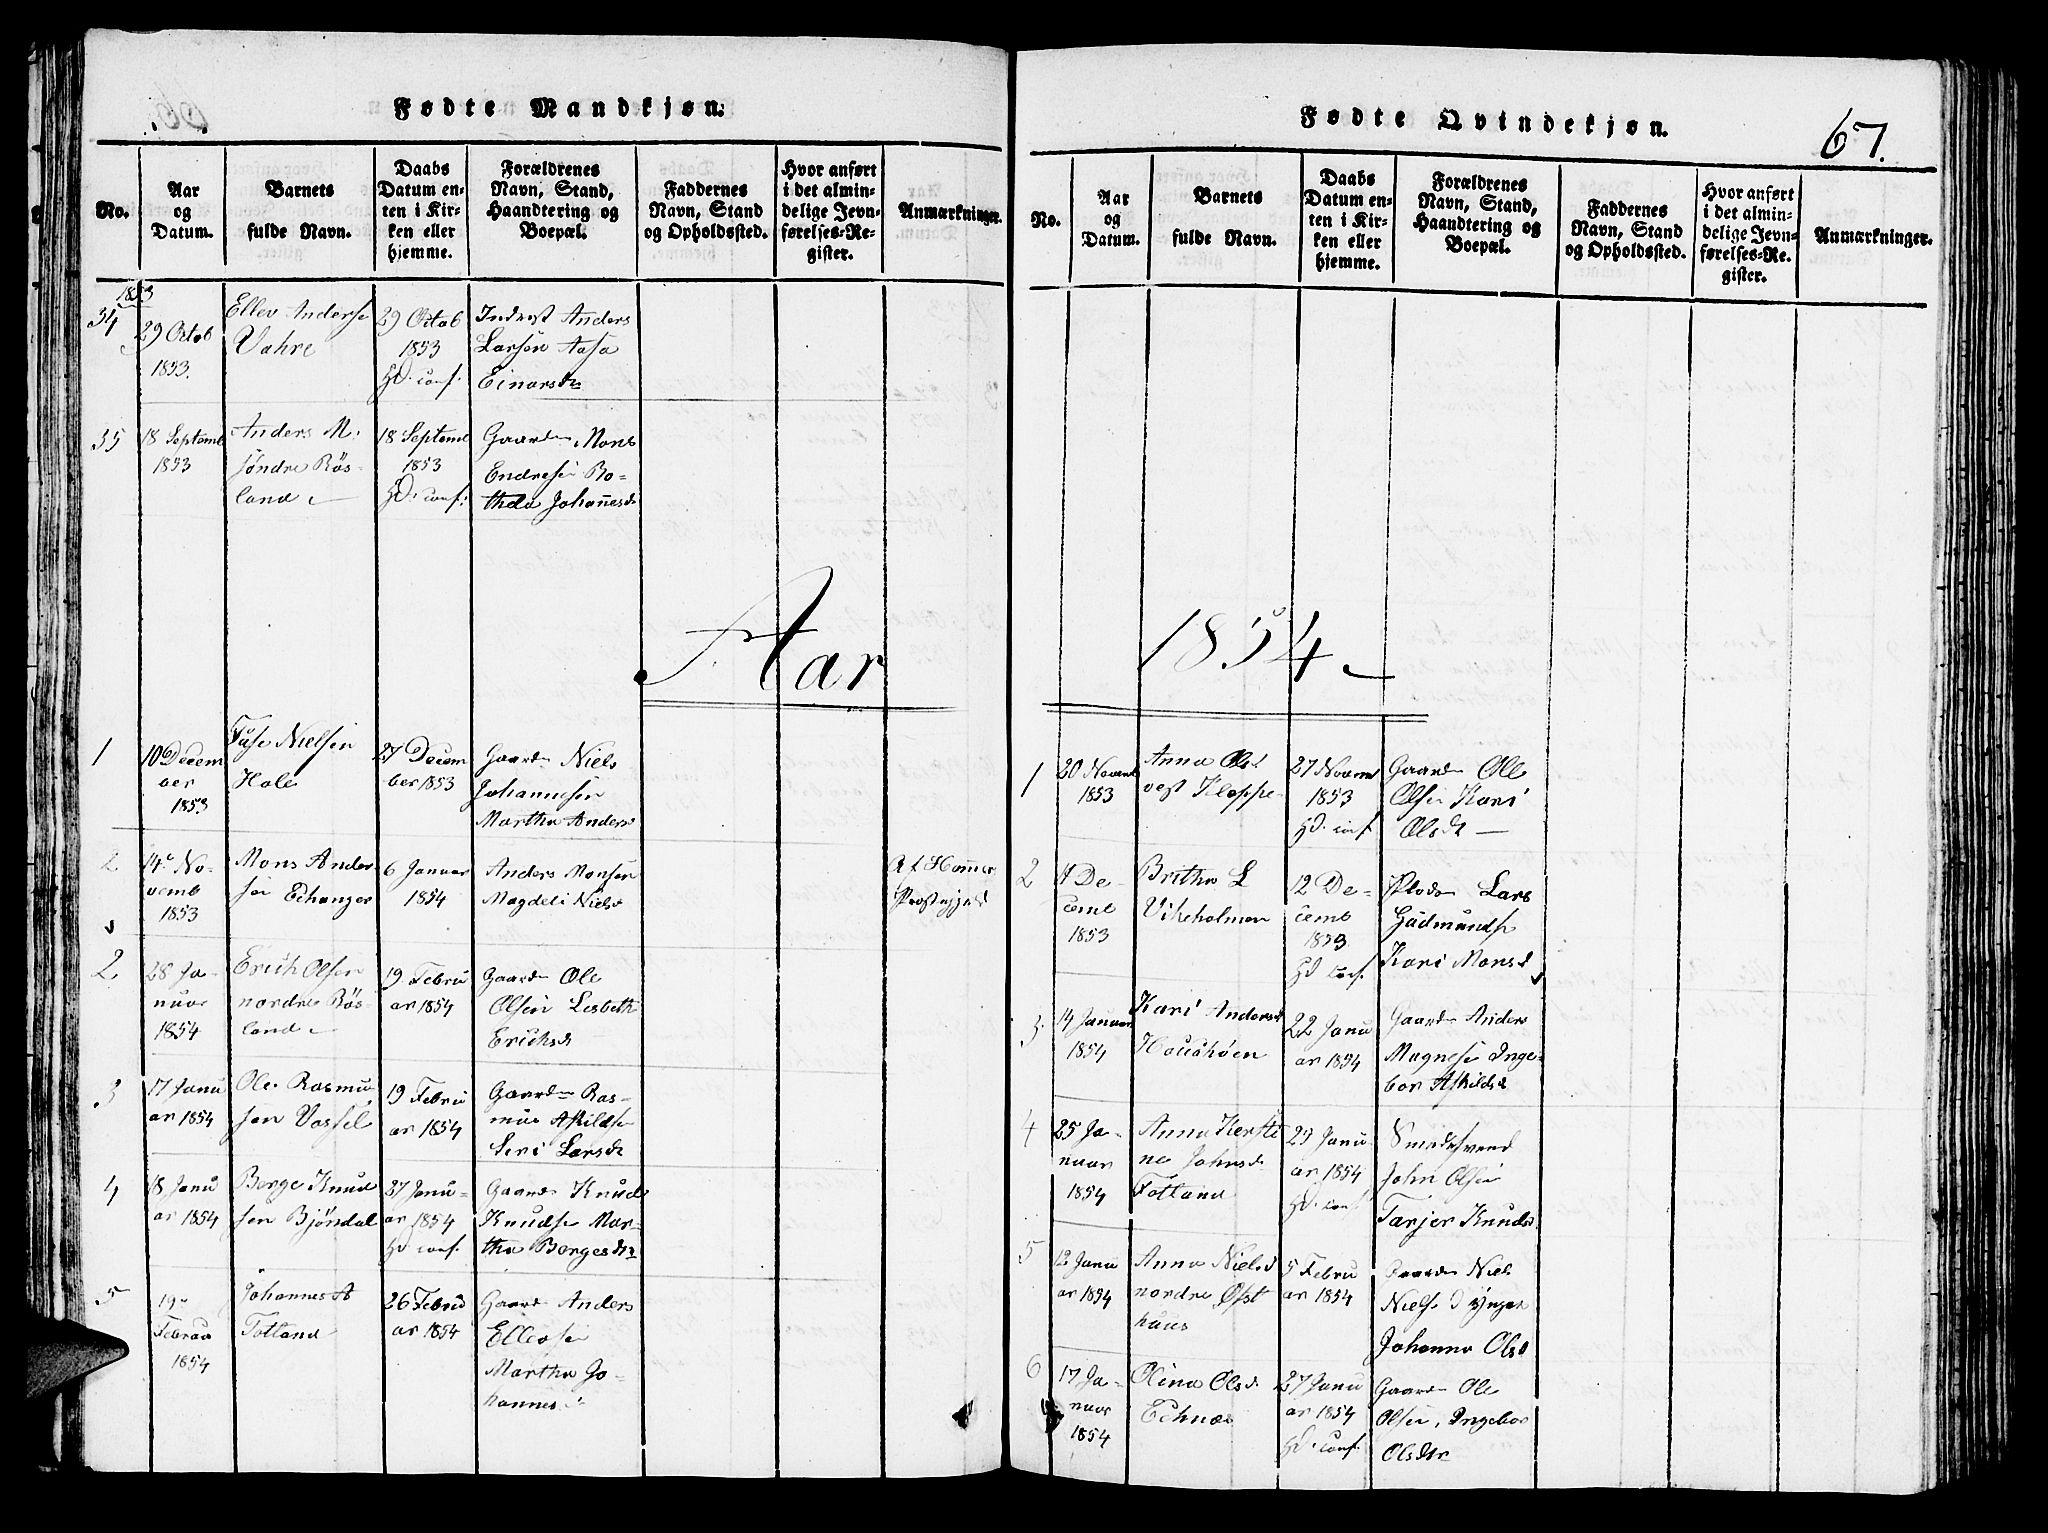 Fødte Mandkjøn.
No.
Aar
og
Datum.
Barnets
fulde Navn.
Daabs
Datum en-
ten i Kir-
ken eller
hjemme.
Forældrenes
Navn, Stand,
Haandtering og
Boepæl.
Faddernes
Navn, Stand
og Opholdssted.
Hvor anført
i det almin-
delige Jevn-
førelses-Re-
gister.
Anmærkninger.
1853
34
29 Octob
1853.
Ellev Anderse
Vahre
29 Octob
1853
Hd. conf.
Anders
Larsen Aasa
Einarsdr
35
18 Septemb
1853
Anders M.
söndre Rös-
land
18 Septemb
1853
Hd. conf.
Gaardm Mons
Endresen Bo-
thilda Johannesd
Aar
1
10 Decem
ber
1853
Nielsen
Hole
27 Decem
ber 1853
Gaardm Niels
Johannesen
Martha Andersd
2
14 No-
vemb
1853
Mons Ander
sen Echanger
6 Januar
1854
Anders Monsen
Magdeli Nielsd
Af Hammer
Præstegjeld
2
28 Ja-
nuar
1854
Erich Olsen
nordre Rös-
land
19 Febru
ar 1854
Gaardm Ole
Olsen Lisbeth
Erichsd
3
17 Janu
ar 1854
Ole Rasmu
sen Vassel
19 Febru
ar 1854
Gaardm Ras-
mus Askildse
Siri Larsd
4
18 Janu
ar 1854
Berge Knud
sen Bjöndal
27 Janu-
ar 1854
Hd conf.
Gaardm Knud
Knudse Mar-
tha Bergesdr
5
19
Februar
1854
Johannes A
Totland
26 Febru
ar 1854
Gaardm Anders
Ellevsen
Martha Jo-
hannesd
Fødte Qvindekjøn.
67.
No.
Aar
og
Datum.
Barnets
fulde Navn.
Daabs
Datum en-
ten i Kir-
ken eller
hjemme.
Forældrenes
Navn, Stand,
Haandtering og
Boepæl.
Faddernes
Navn, Stand
og Opholdssted.
Hvor anført
i det almin-
delige Jevn-
førelses-Re-
gister.
Anmærkninger.
1854
1
20 Novemb
1853
Anna Olsd
vest Kleppe
27 Novemb
1853
Hd. conf.
Gaardm Ole
Olsen Kari
Olsdr
2
4 De-
cemb
1853
Britha L
Vikeholmen
12 De-
cemb
1853
Hd conf.
Lars
Gudmundse
Kari Monsd
3.
14 Januar
1854
Kari Andersd
22 Janu
ar 1854
Gaardm Anders
Magnese Inge-
bor Askildsd
4
25 Ja-
nuar
1854
Anna Kersti
na Johnsd
Totland
29 Janu-
ar 1854
Hd. conf
Smedsvend
John Olsen
Tarjer Knudsd
5
12 Janu
ar 1854
Anna Nielsd
nordre Øst
huus
5 Febru
ar 1854
Gaardm Niels
Nielse d yngre
Johanna Olsd
6
17 Ja-
nuar
1854
Olina Olsd
Echnæs
27 Janu
ar 1854
Hd. conf.
Gaardm Ole
Olsen, Ingebor
Olsdtr